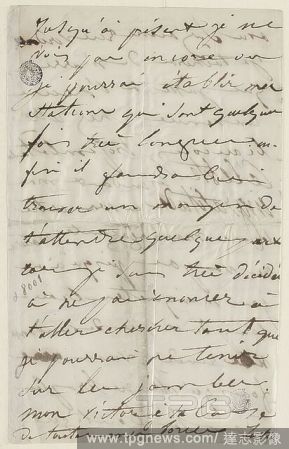 Jusqu'à présent je ne
vois pas encore où
je pourrai établir mes
stations qui sont quelque
fois très longues. en-
fin il faudra bien
trouver un moyen de
t'attendre quelque part
car je suis très décidée
à ne pas renoncer à
t'aller chercher tant que
je pourrai me tenir
sur les jambes.
mon Victor je t'
de toutes mes forces
28001
TPG
www.tpgnews.com / 達志影像